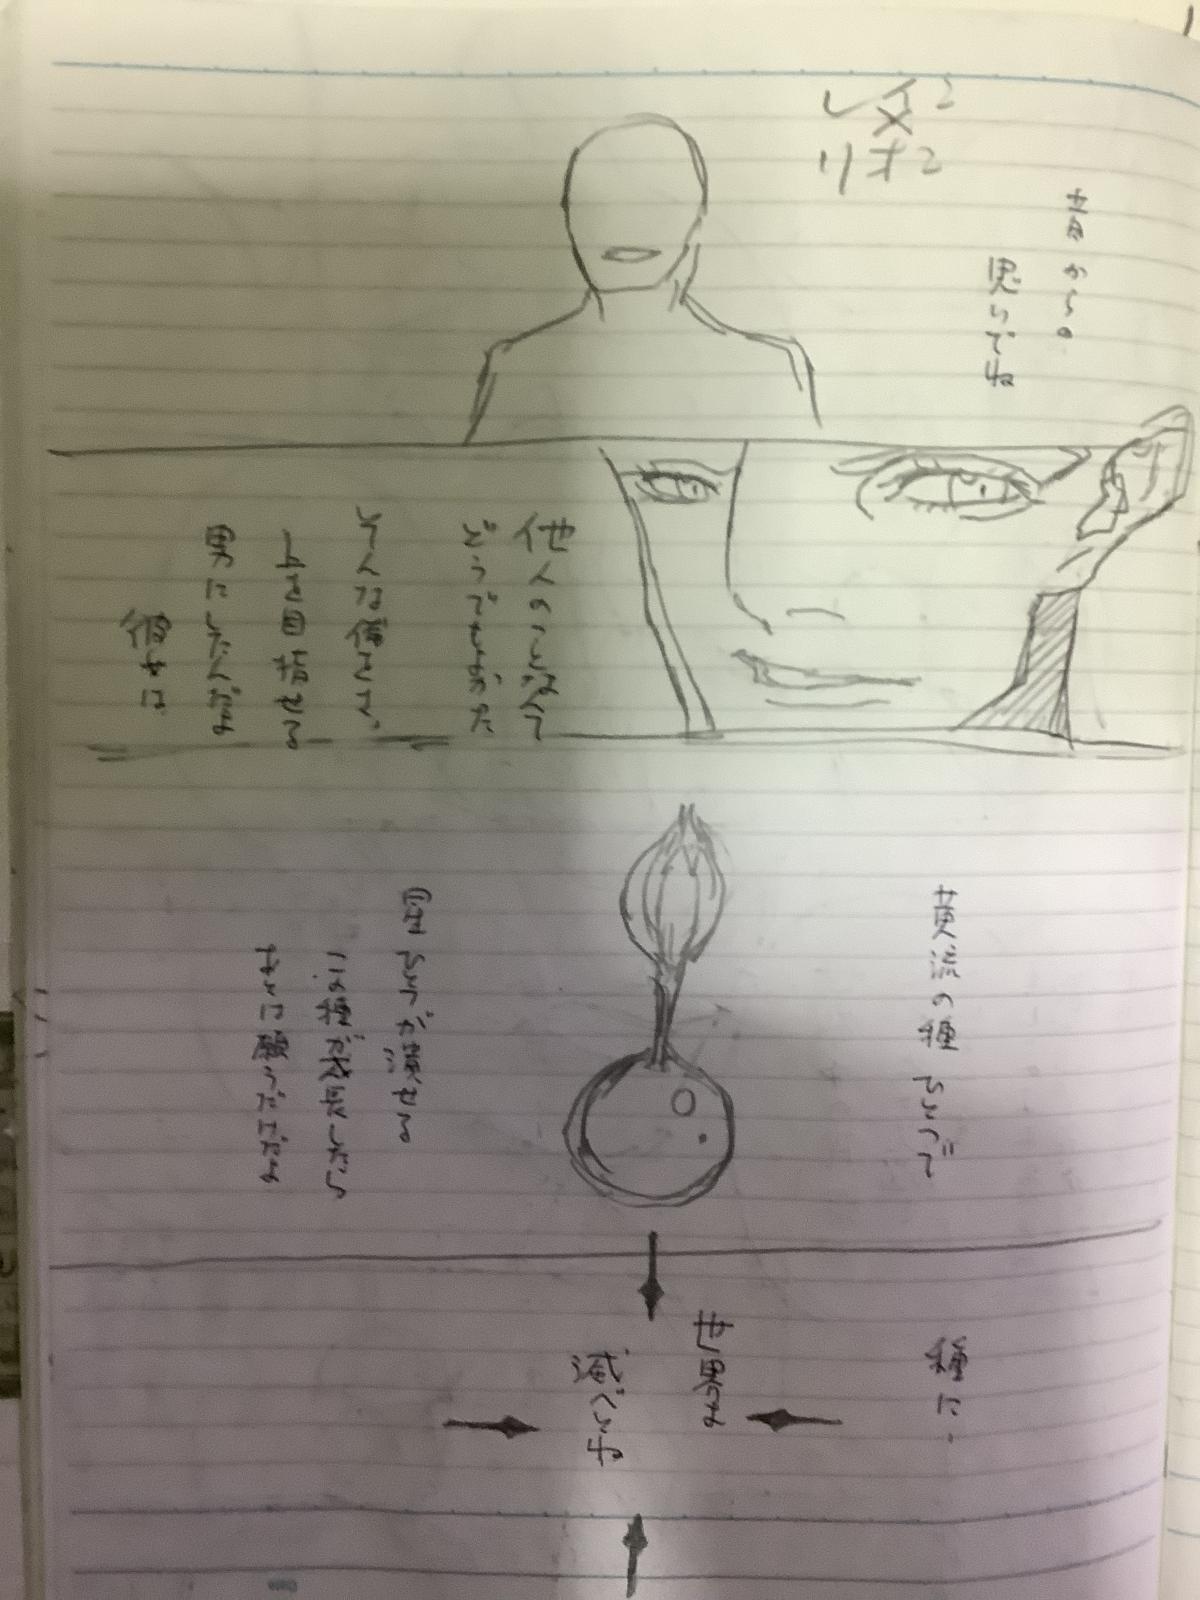 レイ2
リオ2
昔からの
思いでね
他人のことなんて
どうでもよかった
そんな僕をさ、
上を目指せる
男にしたんだよ
彼女は
黄流の種ひとつで
星ひとつが潰せる
この種が成長したら
あとは願うだけだよ
種に、
世界よ
滅べとね